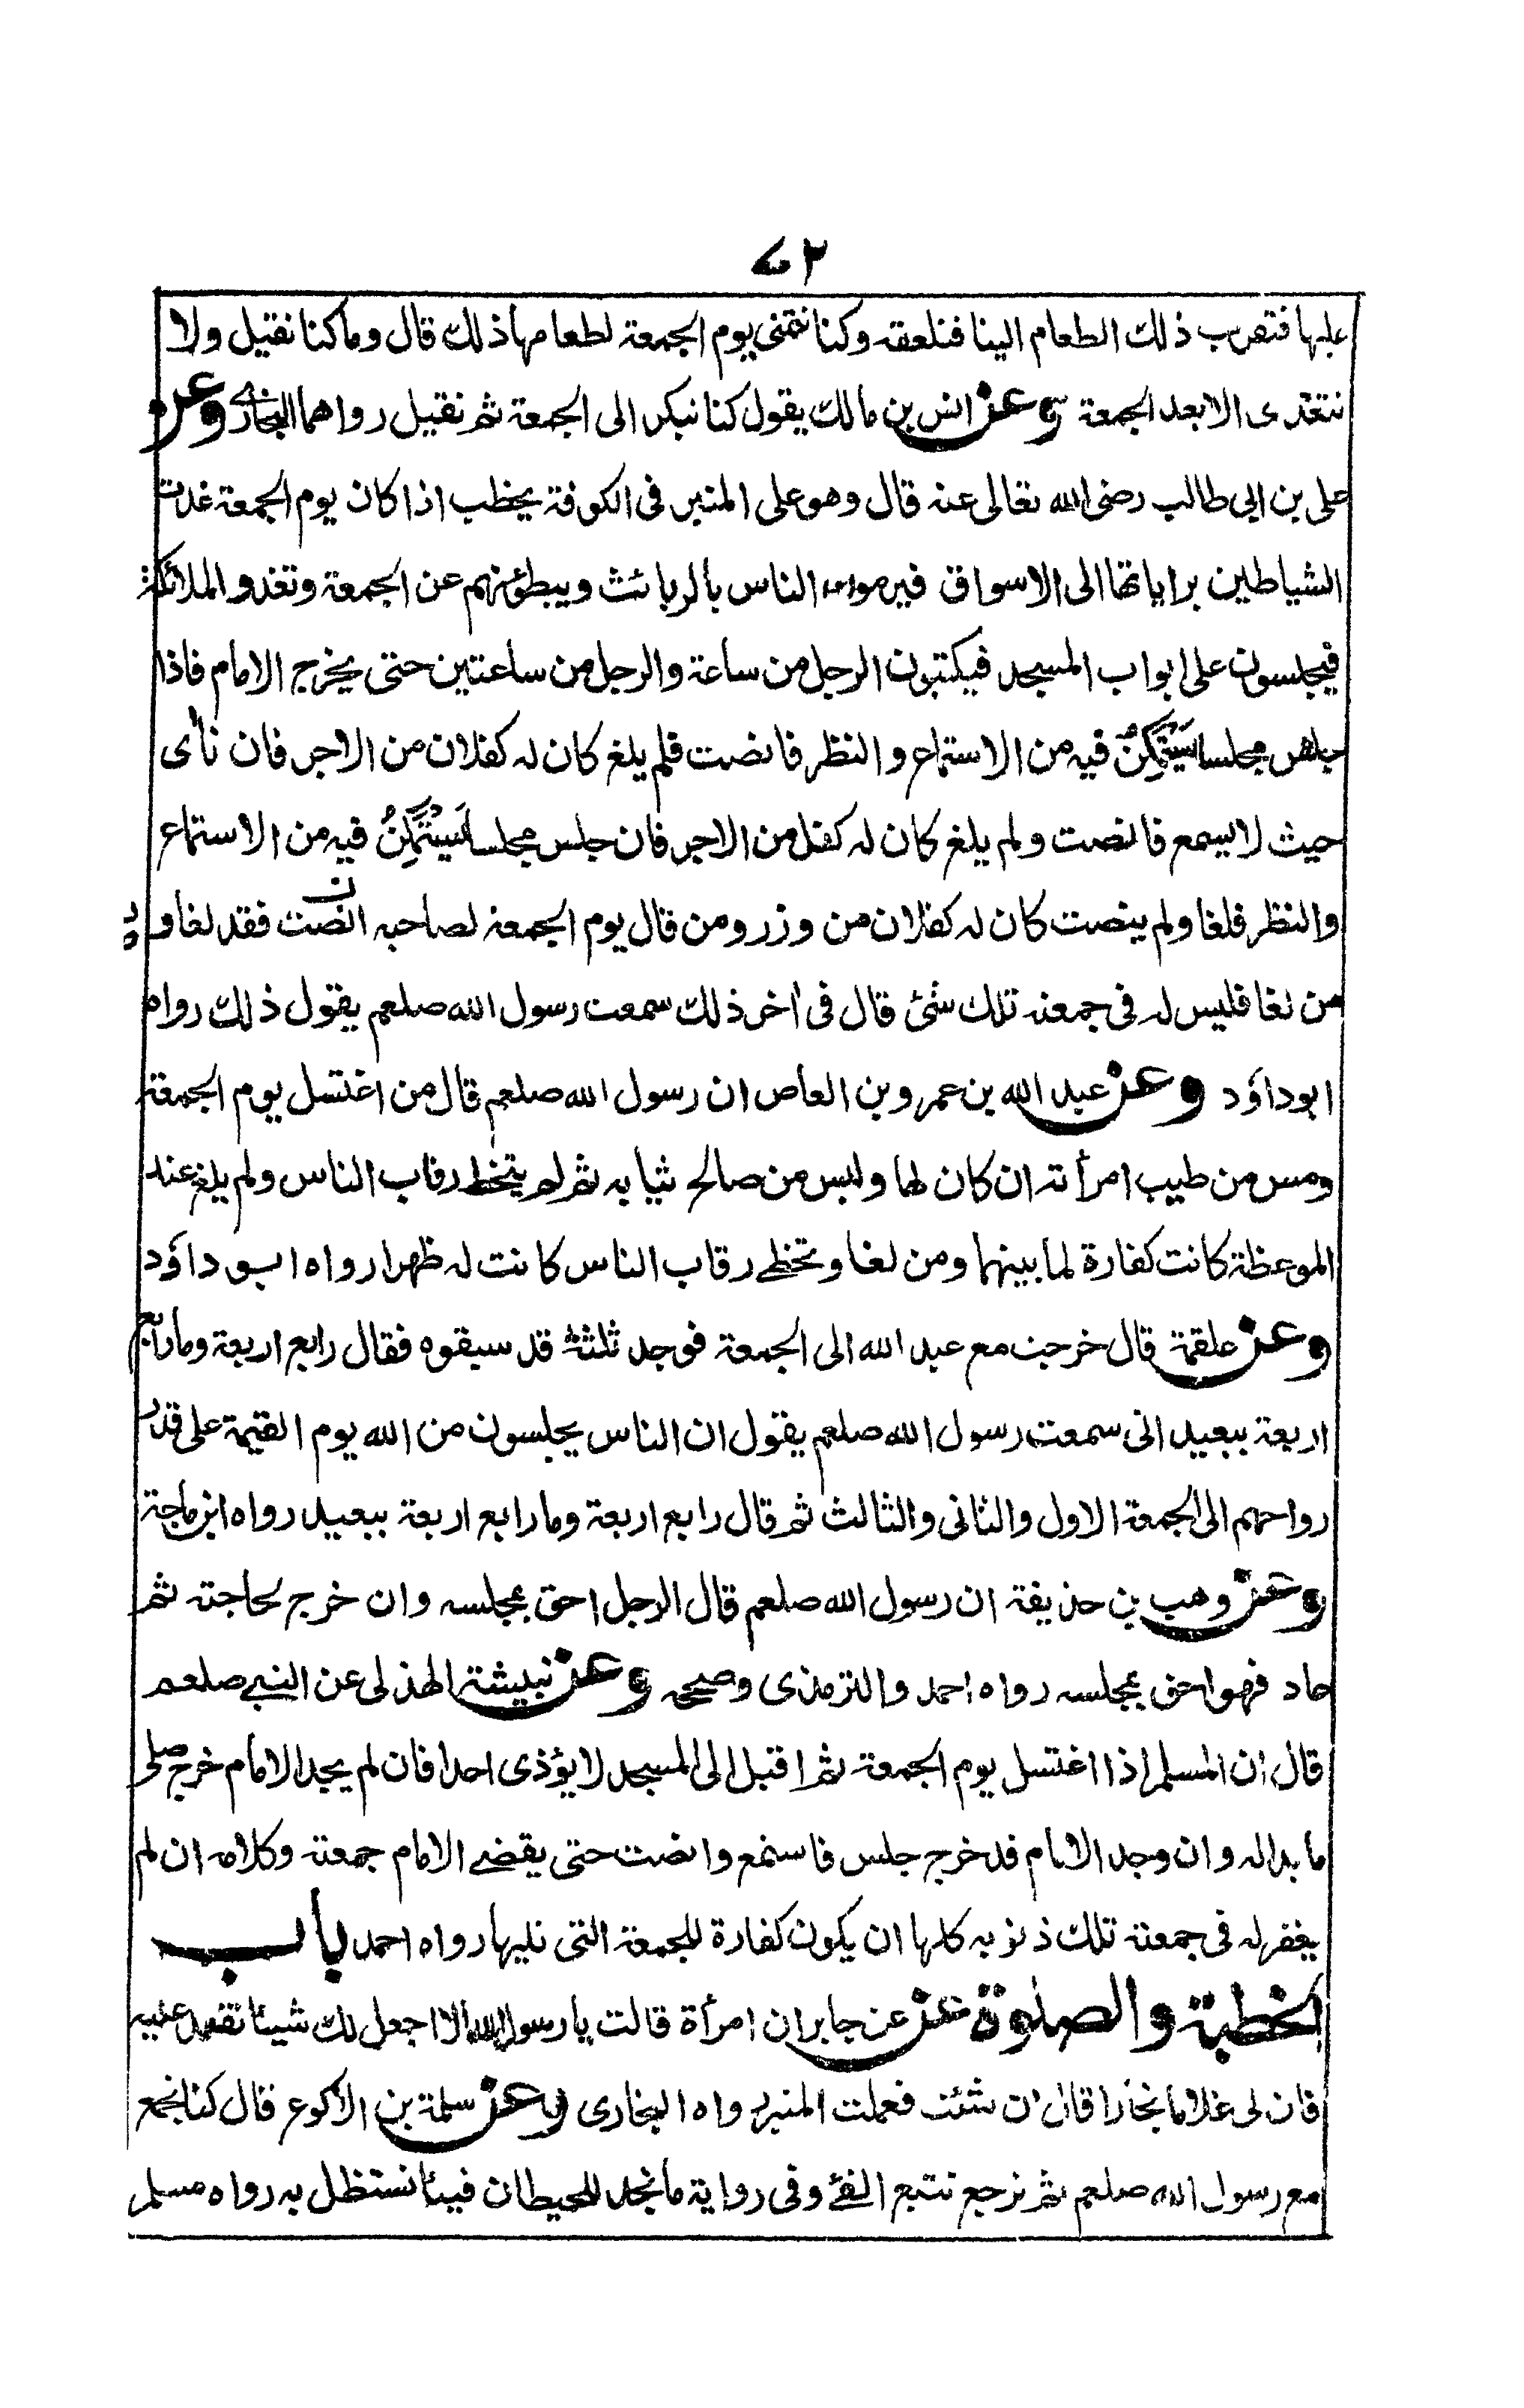 ٧٢
عليها فتقرب ذلك الطعام الينا فنلعقه وكنا نتمنى يوم الجمعة لطعامها ذلك قال وما كنا نقيل ولا
نتغذى الا بعد الجمعة وعن انس بن مالك يقول كنا نبكر الى الجمعة ثم نقيل رواهما البخارى وعن
على بن ابى طالب رضى الله تعالى عنه قال وهو على المنبر فى الكوفة يخطب اذا كان يوم الجمعة غدت
الشياطين براياتها الى الاسواق فيرمون الناس بالربائث ويبطؤنهم عن الجمعة وتغدو الملائكة
فيجلسون على ابواب المسجد فيكتبون الرجل من ساعة والرجل من ساعتين حتى يخرج الامام فاذا
جلس مجلسا يستمكن فيه من الاستماع والنظر فانصت فلم يلغ كان له كفلان من الاجر فان نأى
حيث لا يسمع فانصت ولم يلغ كان له كفل من الاجر فان جلس مجلسا يستمكن فيه من الاستماع
والنظر فلغا ولم ينصت كان له كفلان من وزر ومن قال يوم الجمعة لصاحبه انصت فقد لغا و
من لغا فليس له فى جمعته تلك شئ قال فى أخر ذلك سمعت رسول الله صلعم يقول ذلك رواه
ابوداؤد وعن عبد الله بن عمرو بن العاص ان رسول الله صلعم قال من اغتسل يوم الجمعة
ومس من طيب امرأته ان كان لها ولبس من صالح ثيابه ثم لم يتخط رقاب الناس ولم يلغ عند
الموعظة كانت كفارة لما بينهما ومن لغا وتخطے رقاب الناس كانت له ظهرا رواه ابو داؤد
وعن علقمة قال خرجت مع عبد الله الى الجمعة فوجد ثلثة قد سبقوه فقال رابع اربعة وما رابع
اربعة ببعيد انى سمعت رسول الله صلعم يقول ان الناس يجلسون من الله يوم القيمة على قدر
رواحهم الى الجمعة الاول والثانى والثالث ثم قال رابع اربعة وما رابع اربعة ببعيد رواه ابن ماجة
وعن وهب بن حذيفة ان رسول الله صلعم قال الرجل احق بمجلسه وان خرج لحاجته ثم
عاد فهو احق بمجلسه رواه احمد والترمذى وصححه وعن نبيشة الهذلى عن النبے صلعم
قال ان المسلم اذا اغتسل يوم الجمعة ثم اقبل الى المسجد لا يؤذى احدا فان لم يجد الامام خرج صلى
ما بدا له وان وجد الامام قد خرج جلس فاستمع وانصت حتى يقضے الامام جمعته وكلامه ان لم
يغفر له فى جمعته تلك ذنوبه كلها ان يكون كفارة للجمعة التى تليها رواه احمد باب
الخطبة والصلوة عن عن جابر ان امرأة قالت يا رسول الله ألا اجعل لك شيئا تقعد عليه
فان لى غلاما نجارا قال ان شئت فعملت المنبر رواه البخارى وعن سلمة بن الاكوع قال كنا نجمع
مع رسول الله صلعم ثم نرجع نتتبع الفئ وفى رواية ما نجد للحيطان فيئا نستظل به رواه مسلم